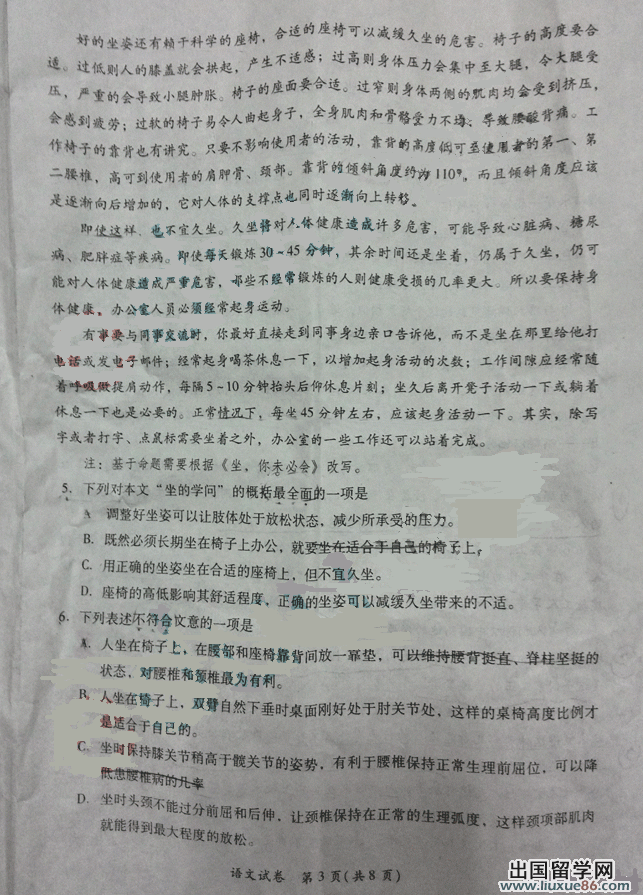 好的坐姿还有赖于科学的座椅，合适的座椅可以减缓久坐的危害。椅子的高度要合
适。过低则人的膝盖就会拱起，产生不适感；过高则身体压力会集中至大腿，令大腿受
压，严重的会导致小腿肿胀。椅子的座面要合适。过窄则身体两侧的肌肉均会受到挤压，
会感到疲劳；过软的椅子易令人曲起身子，全身肌肉和骨骼受力不均，导致腰酸背痛。工
作椅子的靠背也有讲究。只要不影响使用者的活动，靠背的高度低可至使用者的第一、第
二腰椎，高可到使用者的肩胛骨、颈部。靠背的倾斜角度约为110°，而且倾斜角度应该
是逐渐向后增加的，它对人体的支撑点也同时逐渐向上转移。
即使这样，也不宜久坐。久坐将对人体健康造成许多危害，可能导致心脏病、糖尿
病、肥胖症等疾病。即使每天锻炼30～45分钟，其余时间还是坐着，仍属于久坐，仍可
能对人体健康造成严重危害，那些不经常锻炼的人则健康受损的几率更大。所以要保持身
体健康，办公室人员必须经常起身运动。
有事要与同事交流时，你最好直接走到同事身边亲口告诉他，而不是坐在那里给他打
电话或发电子邮件；经常起身喝茶休息一下，以增加起身活动的次数；工作间隙应经常随
着呼吸做提肩动作，每隔5～10分钟抬头后仰休息片刻；坐久后离开凳子活动一下或躺着
休息一下也是必要的。正常情况下，每坐45分钟左右，应该起身活动一下。其实，除写
字或者打字、点鼠标需要坐着之外，办公室的一些工作还可以站着完成。
注：基于命题需要根据《坐，你未必会》改写。
5．下列对本文“坐的学问”的概括最全面的一项是
A 调整好坐姿可以让肢体处于放松状态，减少所承受的压力。
B．既然必须长期坐在椅子上办公，就要坐在适合于自己的椅子上。
C．用正确的坐姿坐在合适的座椅上，但不宜久坐。
D．座椅的高低影响其舒适程度，正确的坐姿可以减缓久坐带来的不适。
6．下列表述不符合文意的一项是
A．人坐在椅子上，在腰部和座椅靠背间放一靠垫，可以维持腰背挺直、脊柱坚挺的
状态，对腰椎和颈椎最为有利。
B．人坐在椅子上，双臂自然下垂时桌面刚好处于肘关节处，这样的桌椅高度比例才
是适合于自己的。
C．坐时保持膝关节稍高于髋关节的姿势，有利于腰椎保持正常生理前屈位，可以降
低患腰椎病的几率
D．坐时头颈不能过分前屈和后伸，让颈椎保持在正常的生理弧度，这样颈项部肌肉
就能得到最大程度的放松。
语文试卷 第3页（共8页）
出国留学网
www.liuxue86.com